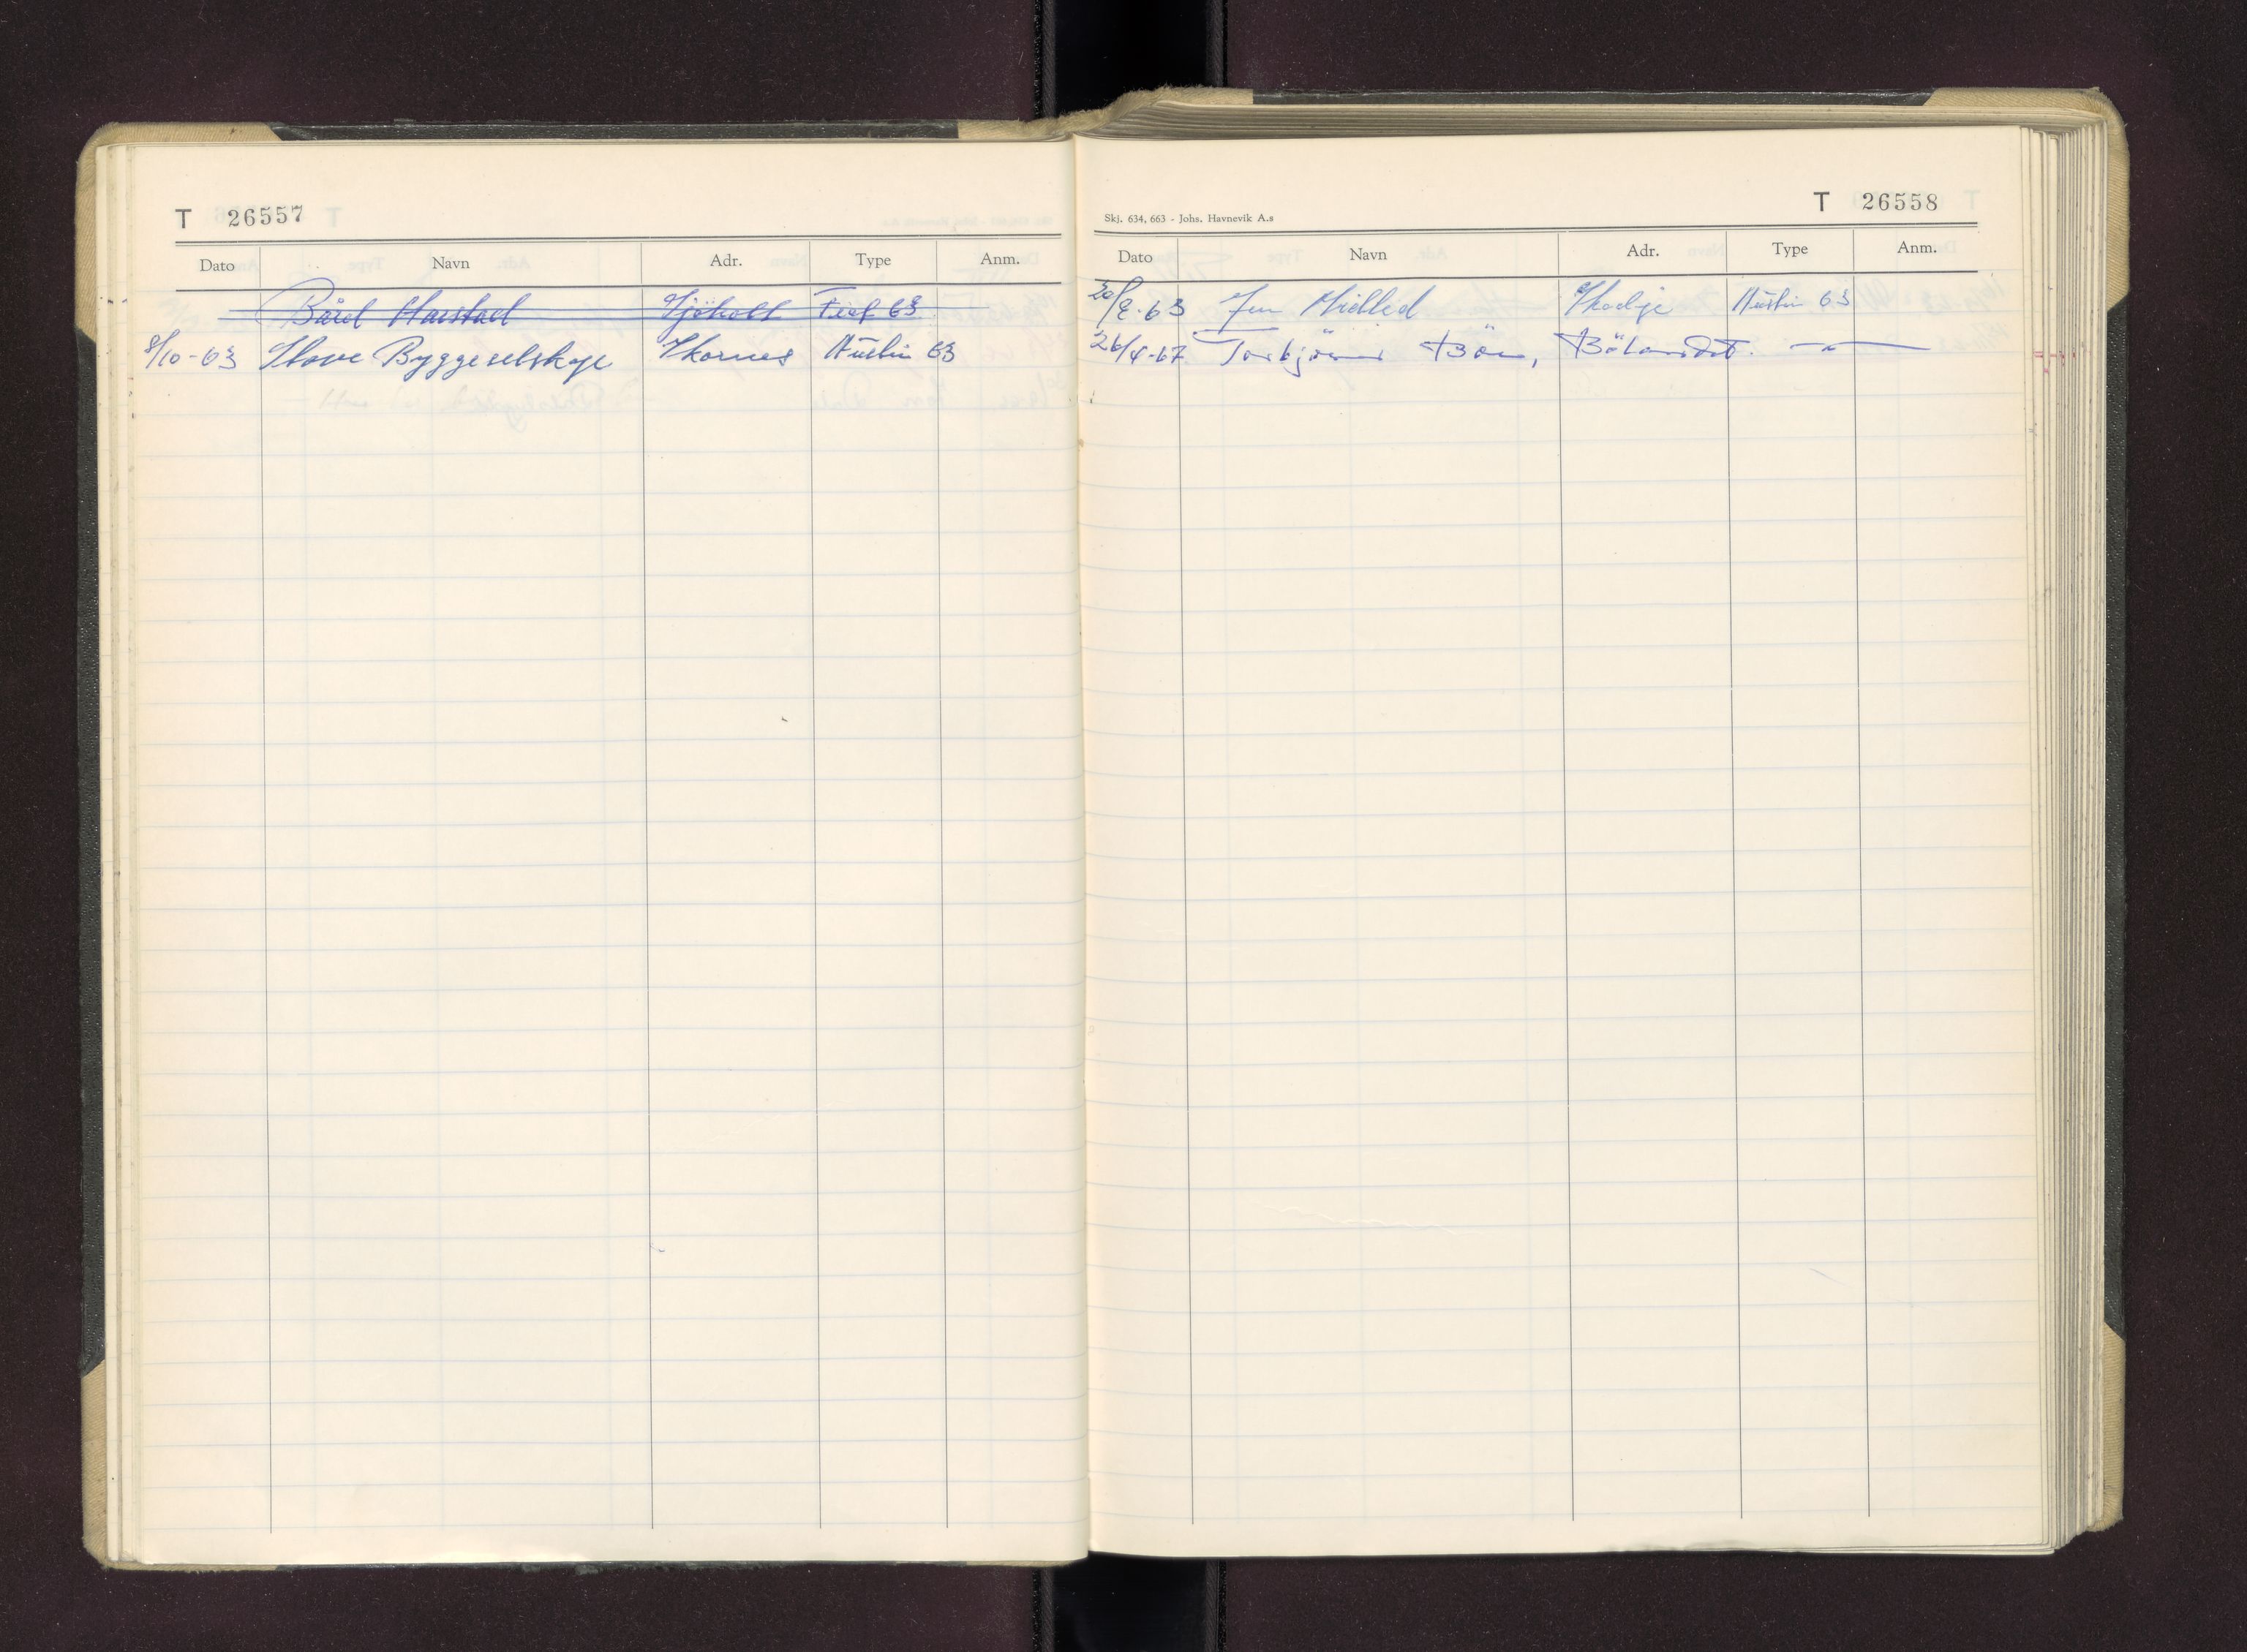 T 26557
Dato Navn Adr. Type Anm.
Bård Harstad Sjöholt 63
8/10-63 Byggeselskap Ikornes Austin 63
Skj. 634, 663 - Johs. Havnevik A.s
T 26558
Dato Navn Adr. Type Anm.
Skodje Austin 63
26/4-67 Torbjörn Bön, Bölandet. — " —